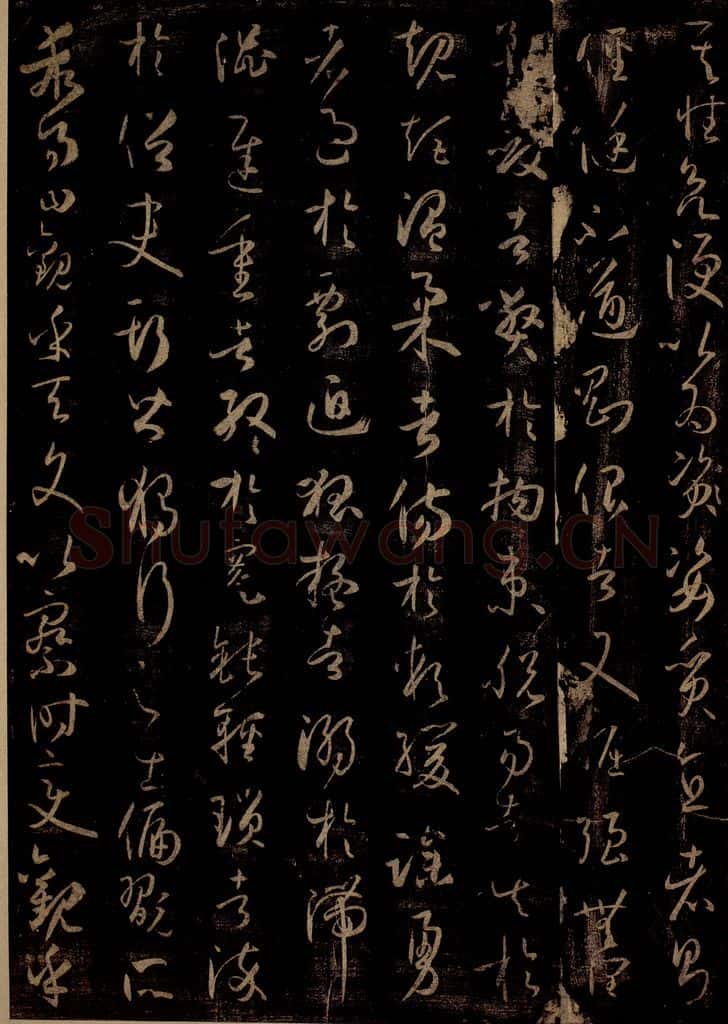 其性欲便以為資姿質直者則
俓侹不遒剛佷者又倔強無潤
矜斂者弊於拘束脫易者失於
規矩溫柔者傷於軟緩躁勇
者過於剽迫狐疑者溺於滯
澀遲重者終於蹇鈍輕瑣者染
於俗吏斯皆獨行之士偏翫所
乖易曰觀乎天文以察時變觀乎
Shutawang.CN